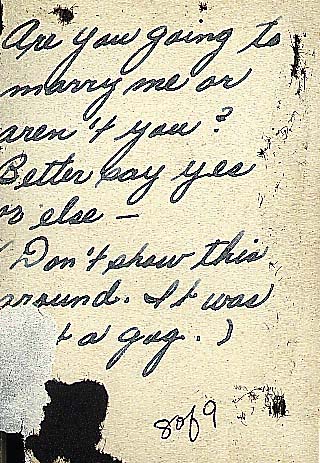 Are you going to
marry me or
aren't you?
Better say yes
or else —
(Don't show this
around. It was
t a gag.)
8 of 9